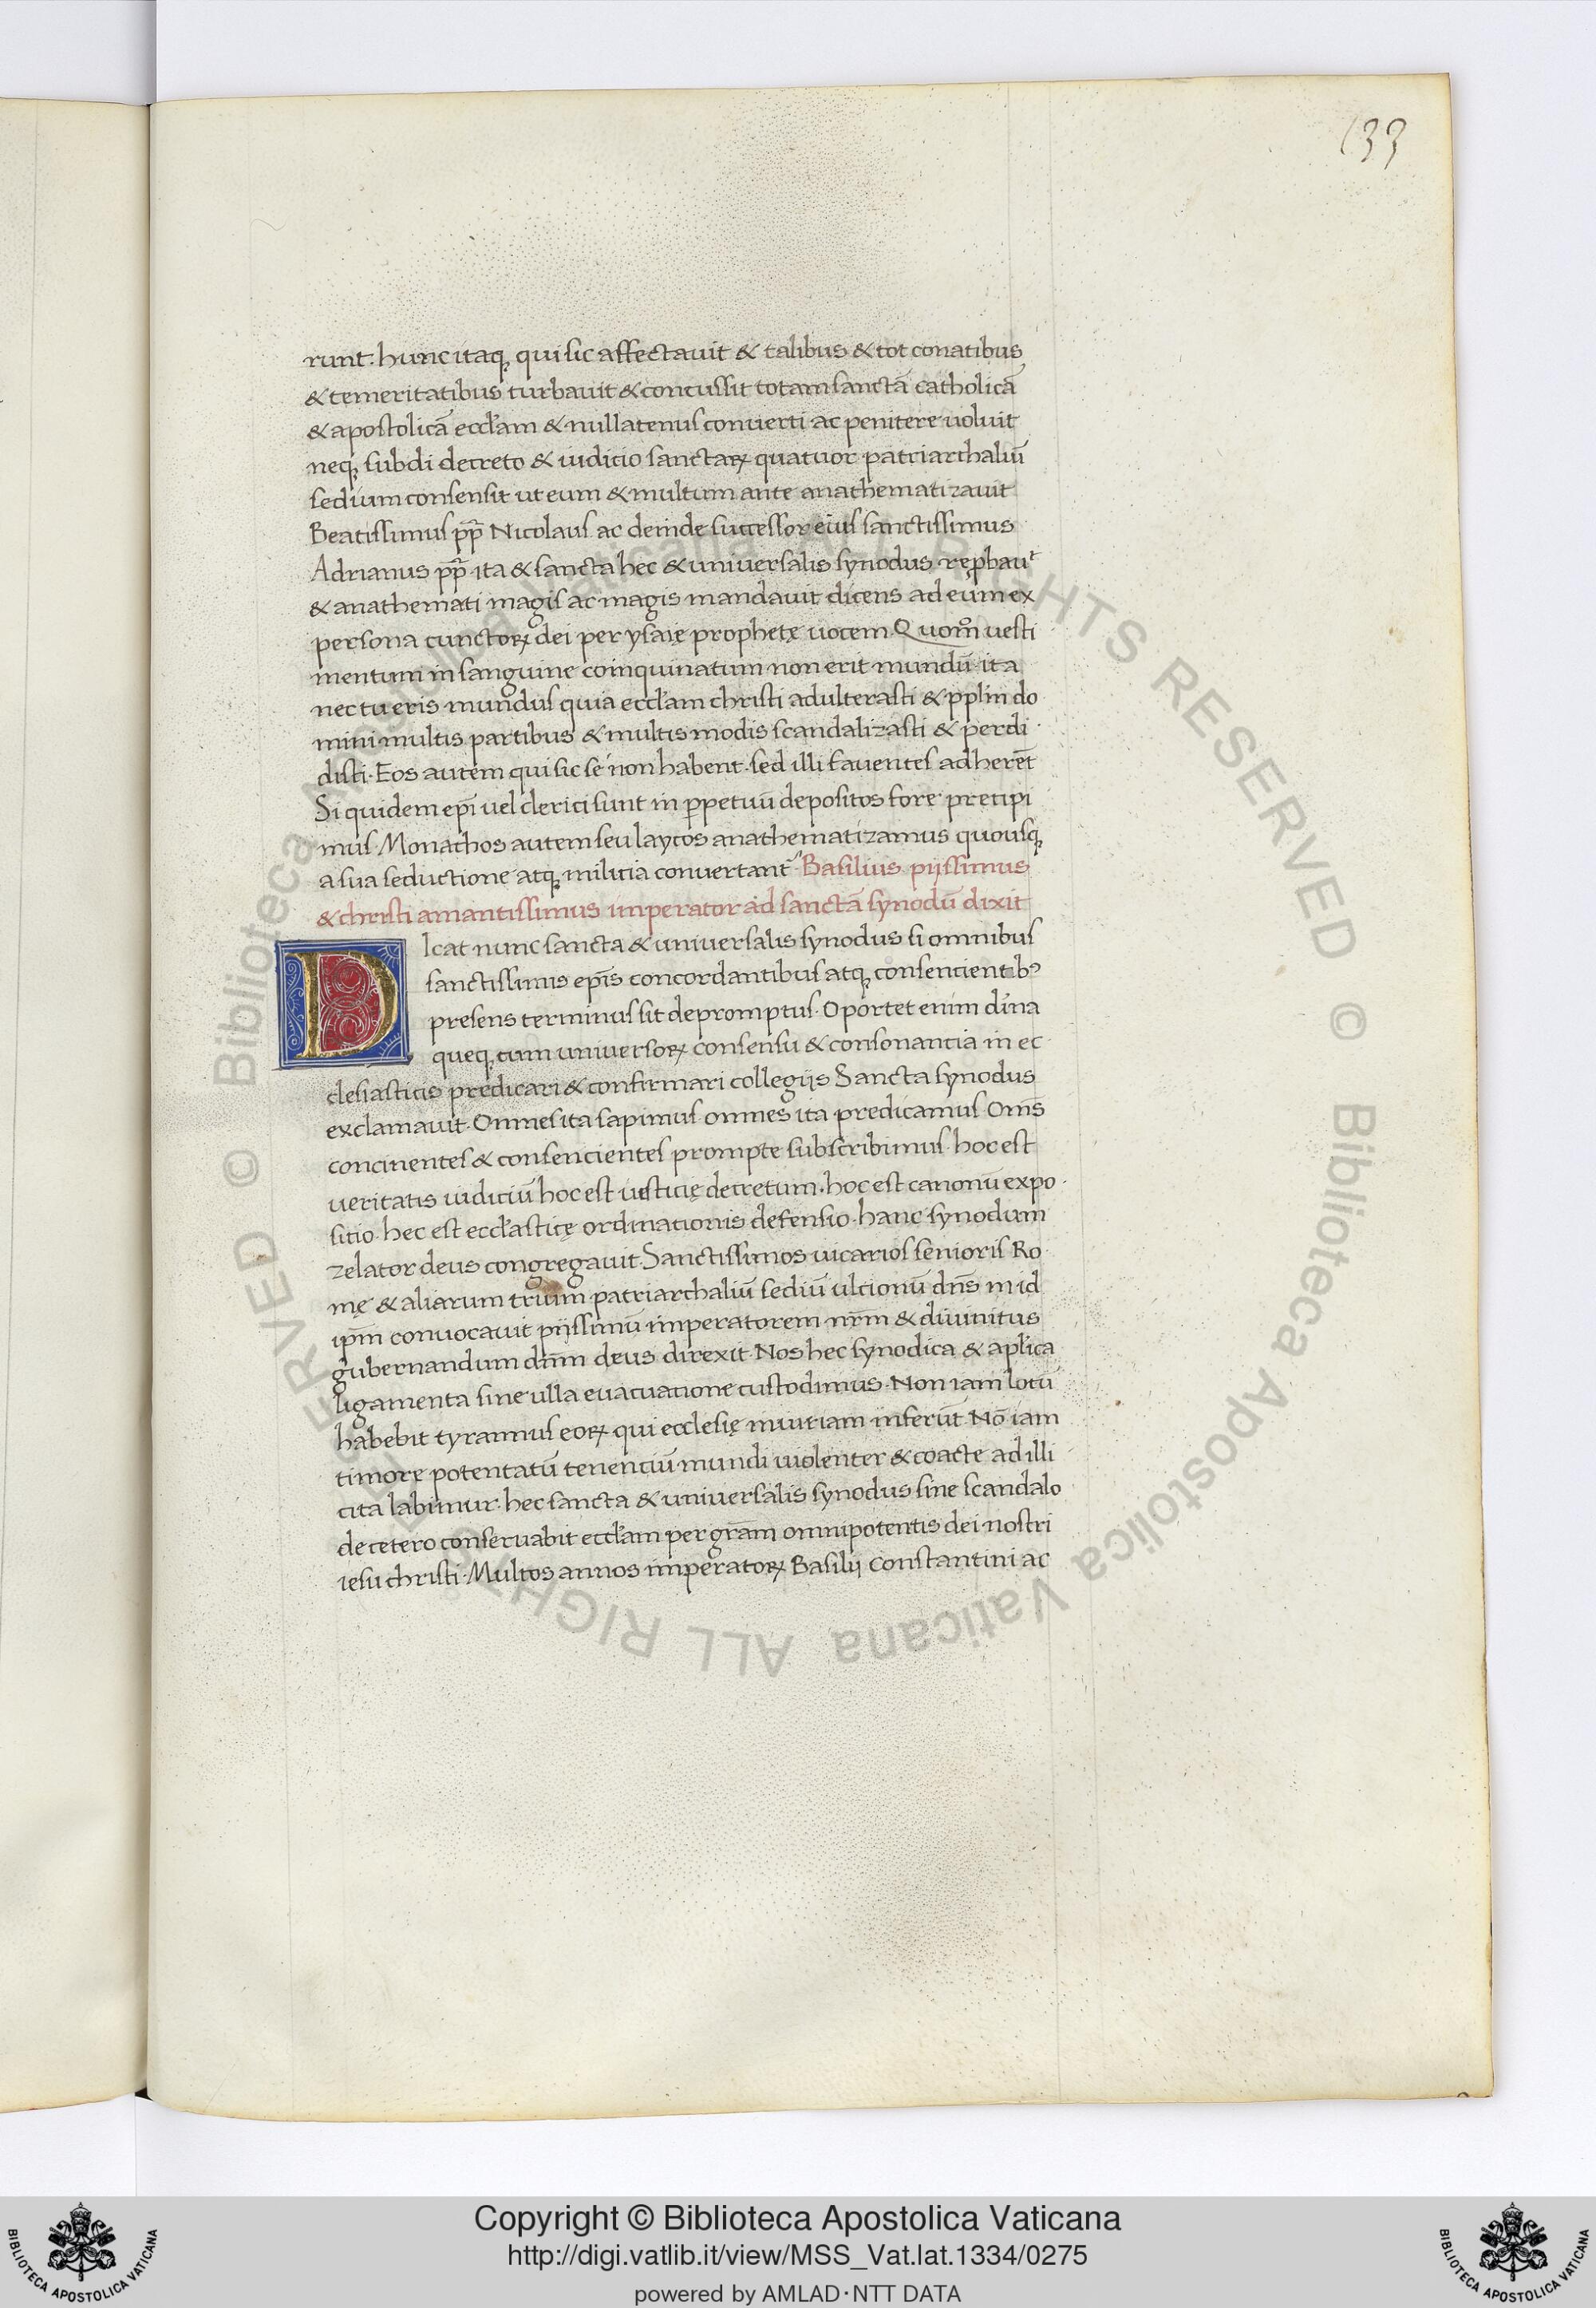 133
runt. hunc itaqꝫ qui sic affectauit & talibus & tot conatibus
& temeritatibus turbauit & concussit totam sanctā catholicā
& apostolicā eccl'am & nullatenus conuerti ac penitere uoluit
neqꝫ subdi decreto & iudicio sanctaꝝ quatuor patriarchaliū
sedium consensit ut eum & multum ante anathematizauit
Beatissimus pp̄ Nicolaus ac deinde successor eius sanctissimus
Adrianus pp̄ ita & sancta hec & uniuersalis synodus rep̱bauᵗ
& anathemati magis ac magis mandauit dicens ad eum ex
persona cunctoꝝ dei per ysaię prophetę uocem. Quom̊ uesti
mentum in sanguine coinquinatum non erit mundū ita
nec tu eris mundus quia eccl'am christi adulterasti & ppl'm do
mini multis partibus & multis modis scandalizasti & perdi
disti. Eos autem qui sic se non habent. sed illi fauentes adherēt
Si quidem epī uel clerici sunt in ꝑpetuū depositos fore precipi
mus Monachos autem seu laycos anathematizamus quousqꝫ
a sua seductione atqꝫ milicia conuertant᷑ Basilius pijssimus
& christi amantissimus imperator ad sanctā synodū dixit
DIcat nunc sancta & uniuersalis synodus si omnibus
sanctissimis epīs concordantibus atqꝫ consencientibꝰ
presens terminus sit depromptus. Oportet enim diīna
queqꝫ cum uniuersoꝝ consensu & consonancia in ec
clesiasticis predicari & confirmari collegijs Sancta synodus
exclamauit. Omnes ita sapimus omnes ita predicamus Om̄s
concinentes & consencientes prompte subscribimus. hoc est
ueritatis iudiciū hoc est iusticię decretum. hoc est canonū expo
sitio. hec est eccl'asticę ordinationis defensio. hanc synodum
zelator deus congregauit. Sanctissimos uicarios senioris Ro
mę & aliarum trium patriarchaliū sediū ulcionū dn̄s in id
ip̄m conuocauit pijssimū imperatorem nr̄m & diuinitus
gubernandum dn̄m deus direxit. Nos hec synodica & apl'ica
ligamenta sine ulla euacuacione custodimus. Non iam locū
habebit tyrannus eoꝝ qui ecclesię iniuriam inferūt. Nō iam
timore potentatū tenenciū mundi uiolenter & coacte ad illi
cita labimur. hec sancta & uniuersalis synodus sine scandalo
de cetero conseruabit eccl'am per gr̄am omnipotentis dei nostri
iesu christi. Multos annos imperatoꝝ Basilij Constantini ac
© Biblioteca Apostolica Vaticana ALL RIGHTS RESERVED © Biblioteca Apostolica Vaticana ALL RIGHTS RESERVED
BIBLIOTECA APOSTOLICA VATICANA
Copyright © Biblioteca Apostolica Vaticana
http://digi.vatlib.it/view/MSS_Vat.lat.1334/0275
powered by AMLAD·NTT DATA
BIBLIOTECA APOSTOLICA VATICANA